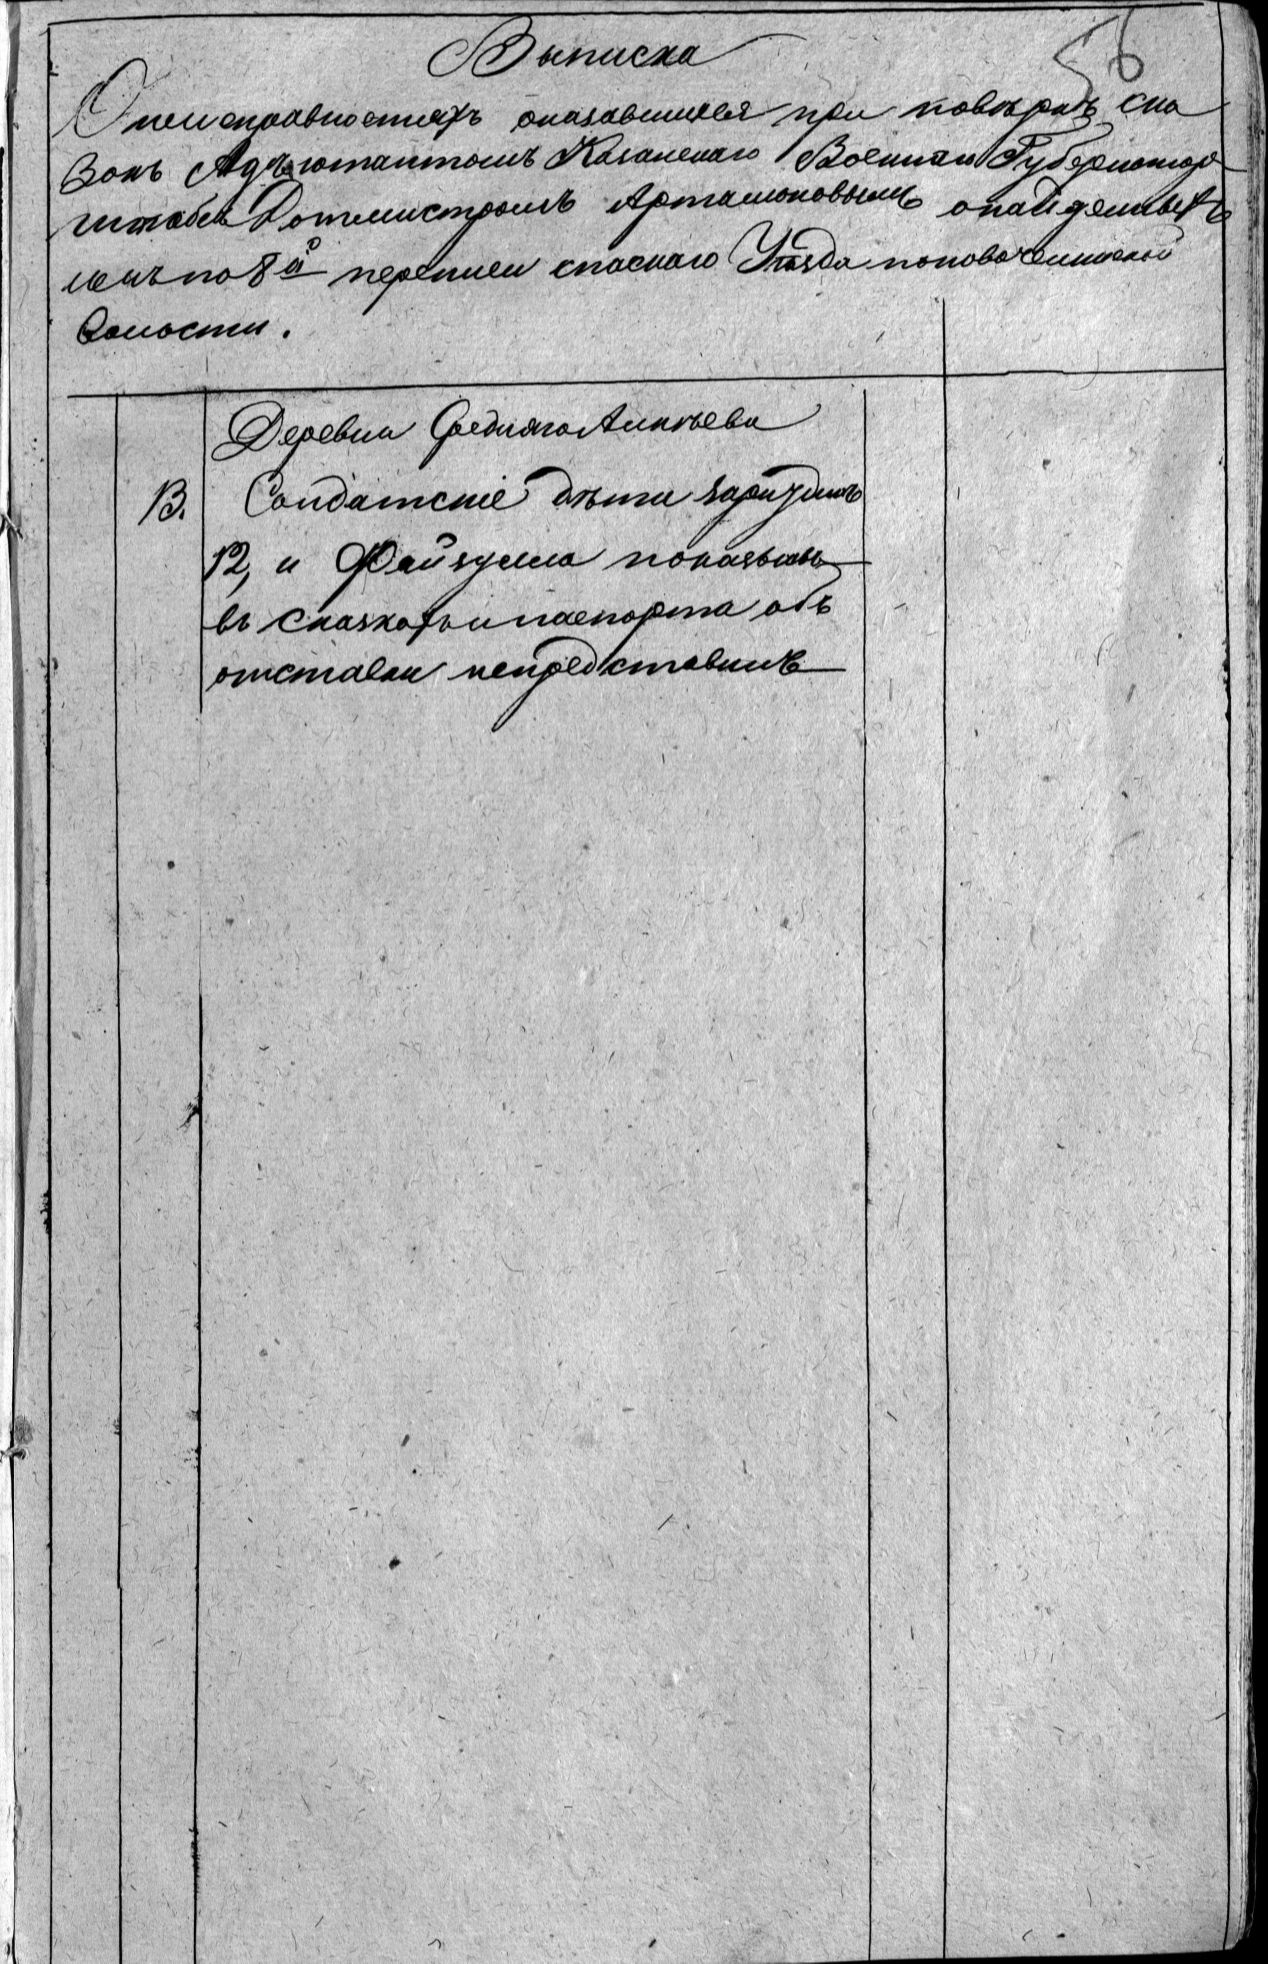 Выписка
56
О неисправностяхъ оказавшихся при поверкѣ ска
зокъ Адъютантомъ Казанскаго Военнаго Губернатора
штабсъ Ротмистромъ Артамоновымъ о найденныхъ
имъ по 8й переписи спаскаго Уѣзда
волости.
Деревни Средняго Алькѣева
В. Солдатскіе дѣти
12, и Файзулла показаны
въ сказкахъ и паспорта объ
отставки непредставилъ